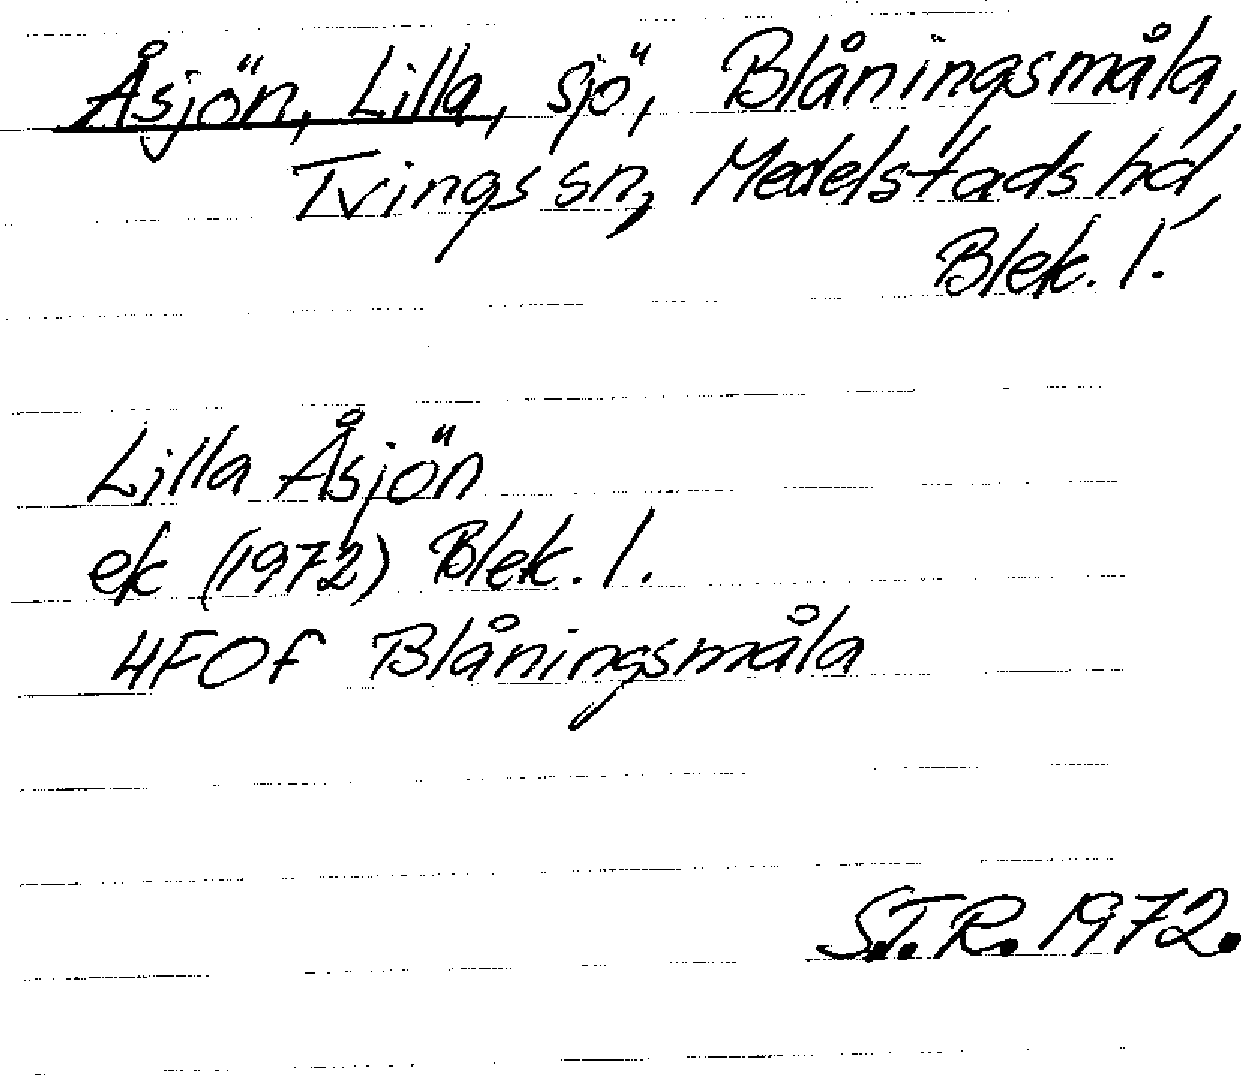 Åsjön, Lilla, sjö, Blåningsmåla,
Tvings sn, Medelstads hd,
Blek. l.
Lilla Åsjön
ek (1972) Blek. l.
4F0f Blåningsmåla
S.T.R. 1972.